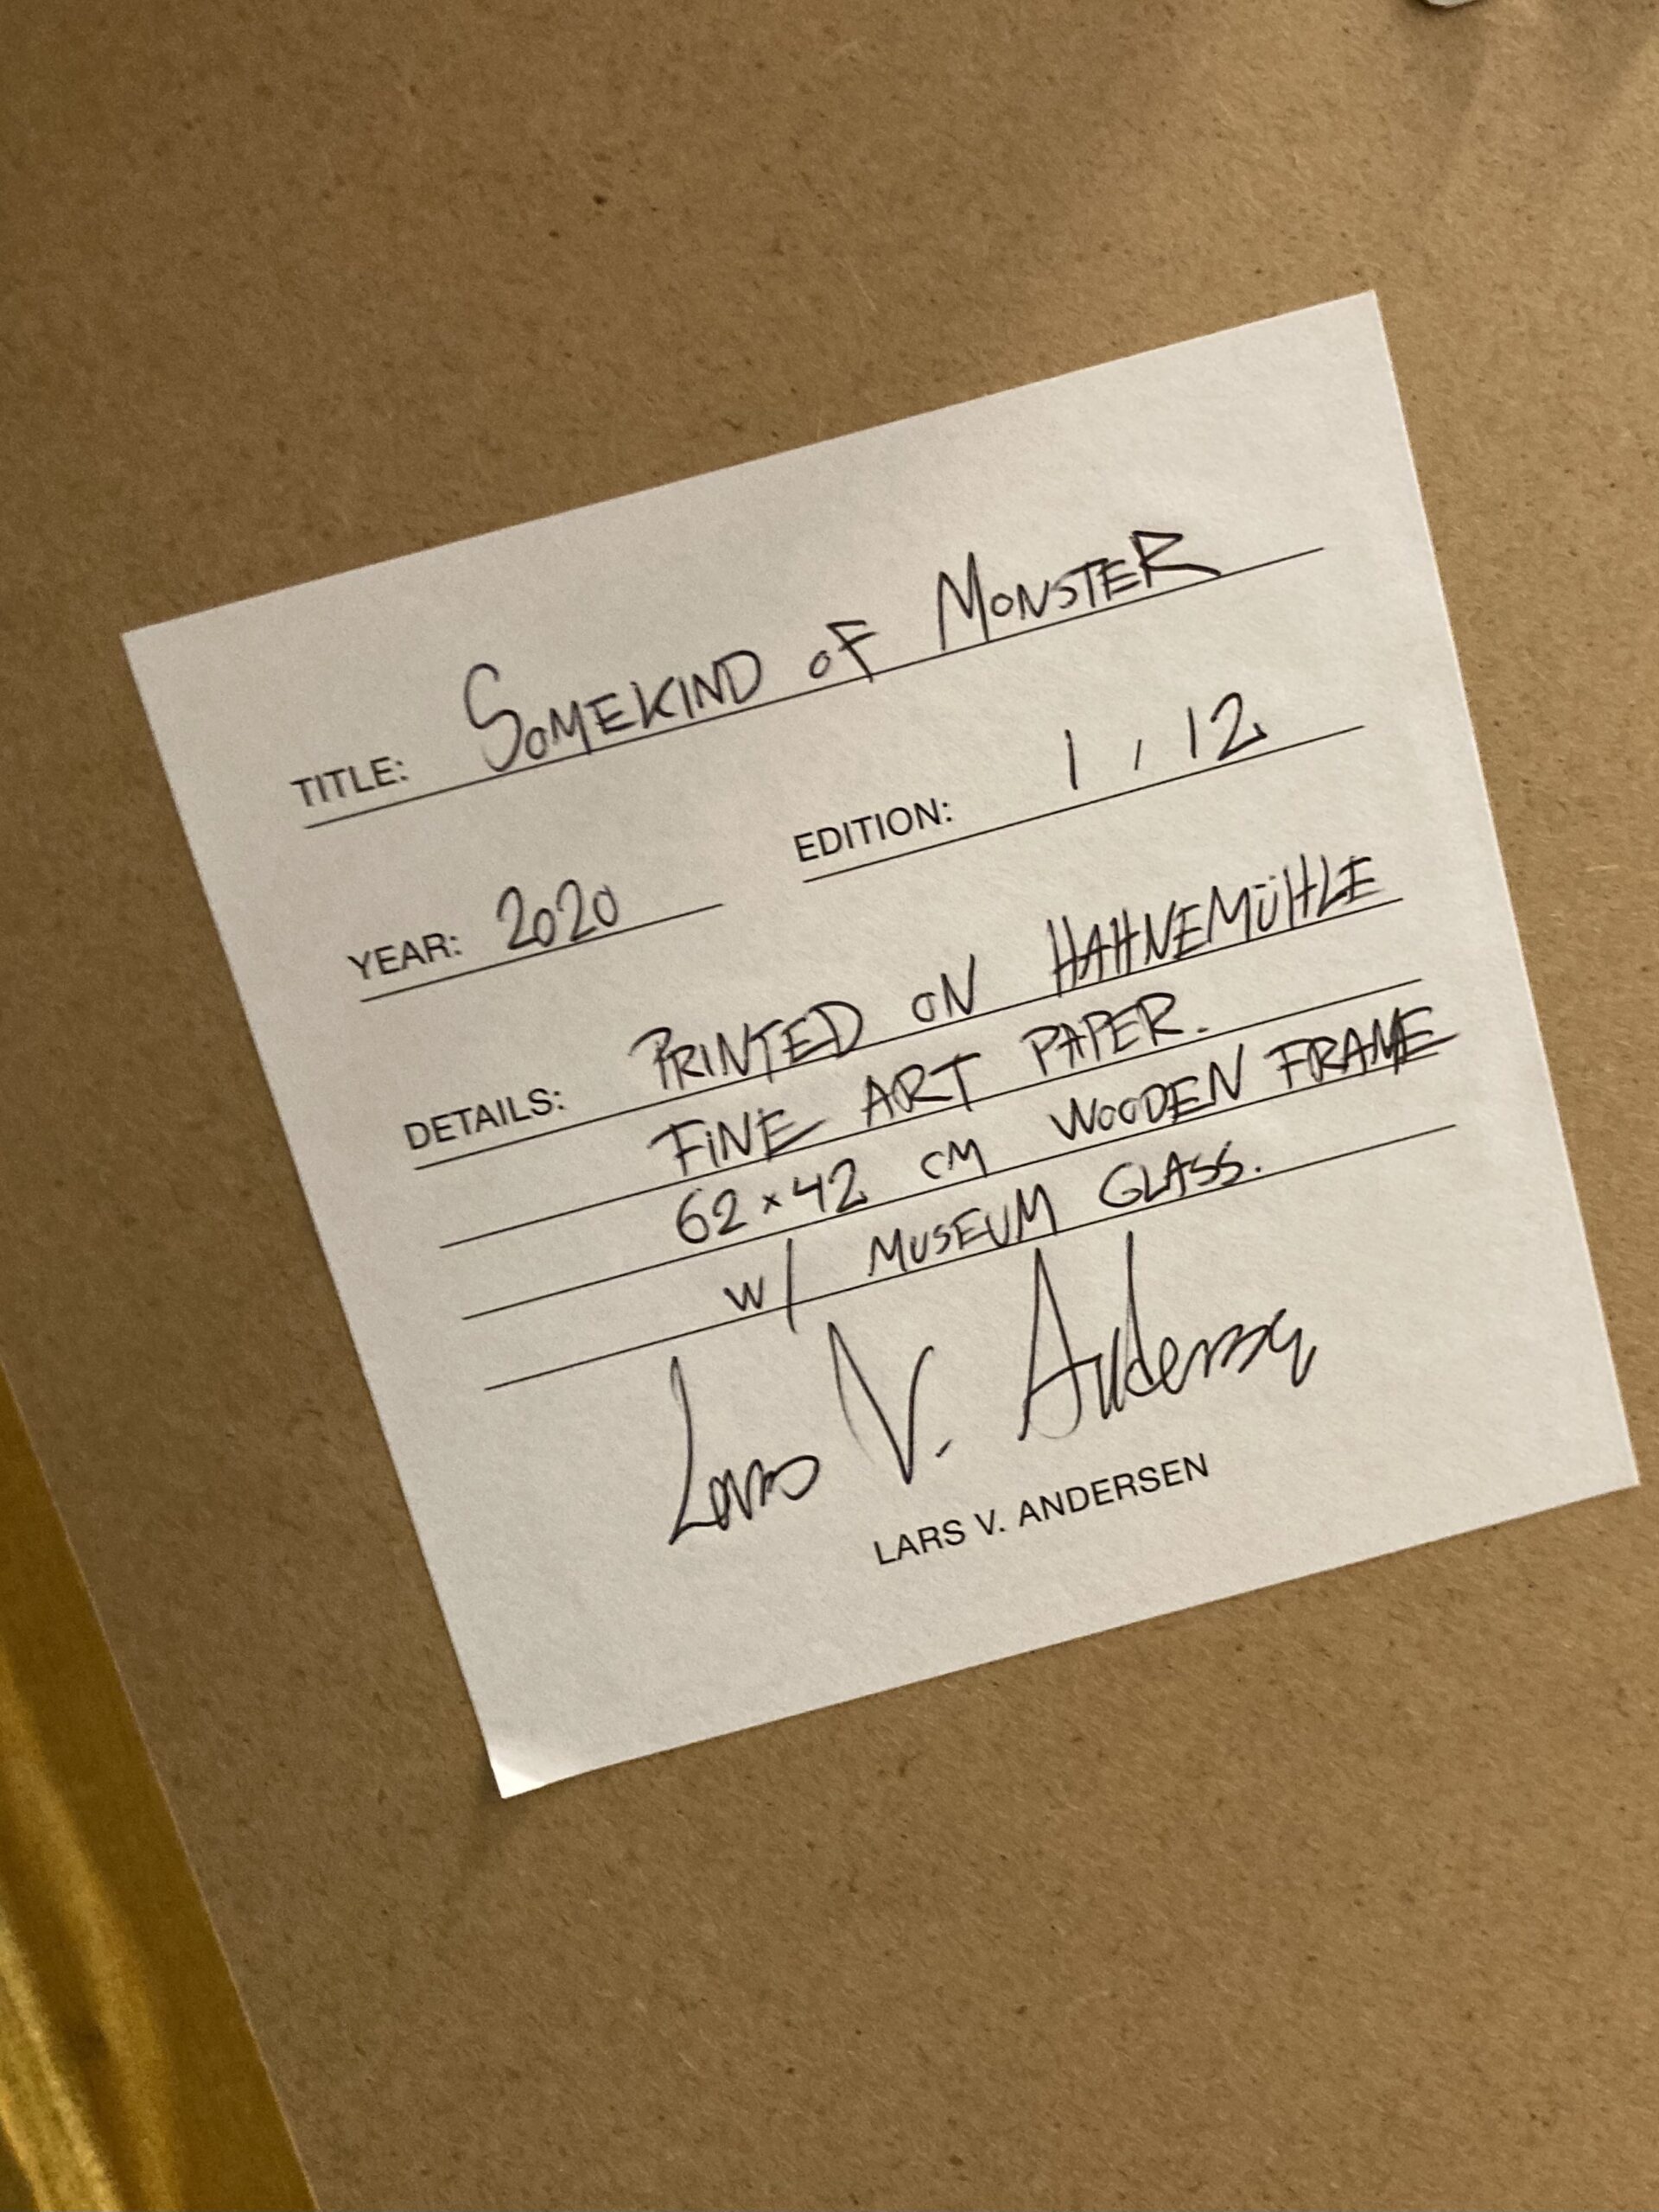 TITLE: SOMEKIND OF MONSTER
YEAR: 2020 EDITION: 1 / 12
DETAILS: PRINTED ON HAHNEMÜHLE
FINE ART PAPER.
62 x 42 CM WOODEN FRAME
W/ MUSEUM GLASS.
Lars V. Andersen
LARS V. ANDERSEN